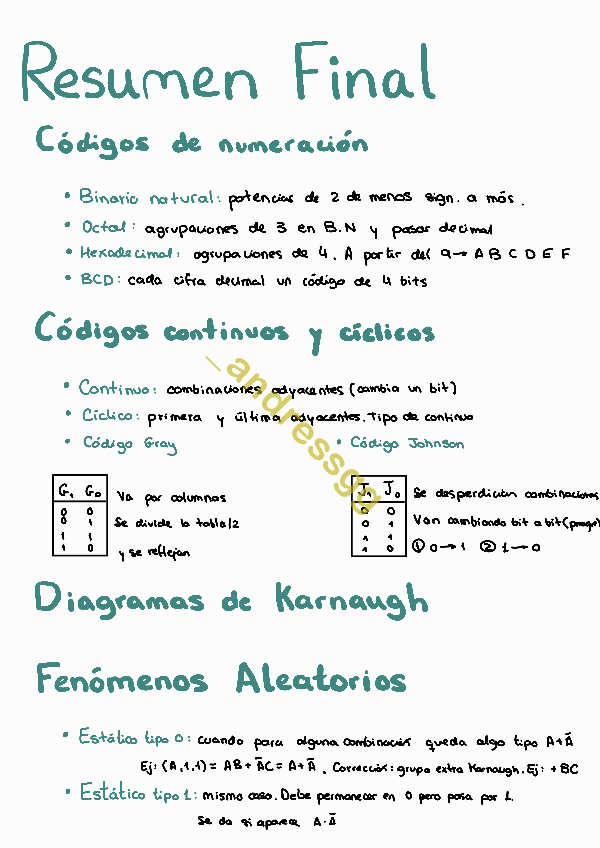 Resumen Final
Códigos de numeración
• Binario natural: potencias de 2 de menos sign. a más.
• Octal: agrupaciones de 3 en B.N y pasar decimal
• Hexadecimal: agrupaciones de 4. A partir del 9→ A B C D E F
• BCD: cada cifra decimal un código de 4 bits
Códigos continuos y cíclicos
• Continuo: combinaciones adyacentes (cambia un bit)
• Cíclico: primera y última adyacentes. Tipo de continuo
• Código Gray
G₁ G₀
0 0
0 1
1 1
1 0
Va por columnas
Se divide la tabla/2
y se reflejan
• Código Johnson
J₁ J₀
0 0
0 1
1 1
1 0
Se desperdician combinaciones
Van cambiando bit a bit (progr
① 0→1 ② 1→0
_andressgg
Diagramas de Karnaugh
Fenómenos Aleatorios
• Estático tipo 0: cuando para alguna combinación queda algo tipo A+Ā
Ej: (A,1,1) = AB + ĀC = A + Ā. Corrección: grupo extra Karnaugh. Ej: + BC
• Estático tipo 1: mismo caso. Debe permanecer en 0 pero pasa por 1.
Se da si aparece A·Ā